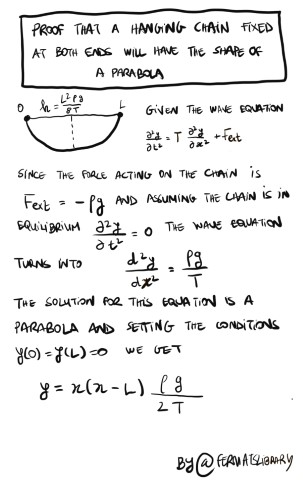 PROOF THAT A HANGING CHAIN FIXED
AT BOTH ENDS WILL HAVE THE SHAPE OF
A PARABOLA
0 h = L²ρg/8T L
GIVEN THE WAVE EQUATION
∂²y/∂t² = T ∂²y/∂x² + Fext
SINCE THE FORCE ACTING ON THE CHAIN IS
Fext = -ρg AND ASSUMING THE CHAIN IS IN
EQUILIBRIUM ∂²y/∂t² = 0 THE WAVE EQUATION
TURNS INTO d²y/dx² = ρg/T
THE SOLUTION FOR THIS EQUATION IS A
PARABOLA AND SETTING THE CONDITIONS
y(0) = y(L) = 0 WE GET
y = x(x - L) ρg/2T
BY @FERMATSLIBRARY